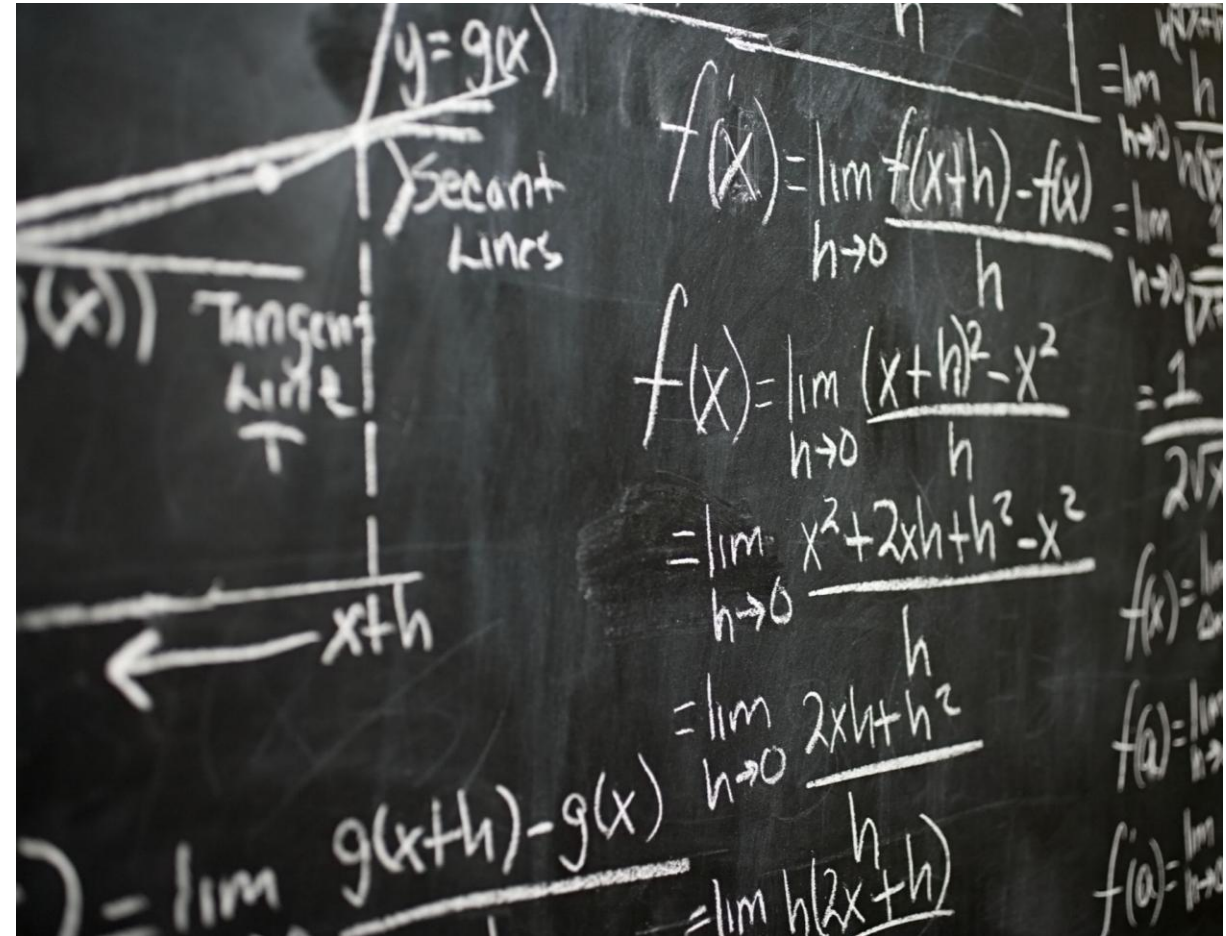 y = g(x)
Secant
Lines
(x))
Tangent
Line
T
x+h
= lim g(x+h) - g(x)
h
f'(x) = lim f(x+h) - f(x)
h→0 h
f(x) = lim (x+h)² - x²
h→0 h
= lim x² + 2xh + h² - x²
h→0 h
= lim 2xh + h²
h→0 h
= lim h(2x + h)
= lim h
h→0
= lim
h→0
= 1
2√x
f(x) = lim
f(a) = lim
h→
f'(a) = lim
h→0